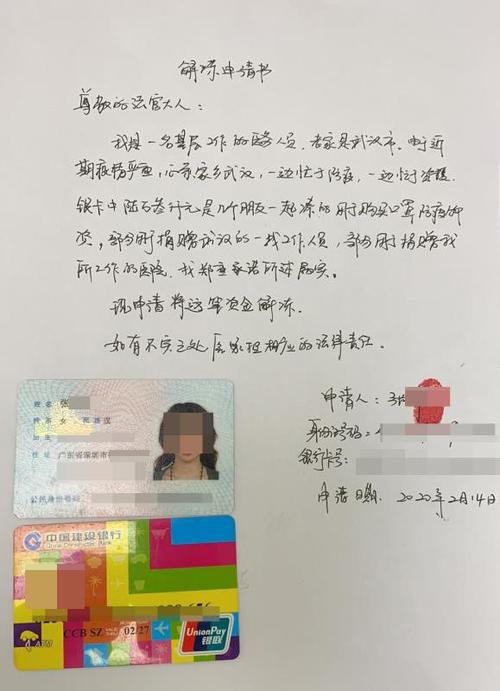 解冻申请书
尊敬的法官大人：
我是一名基层工作的医务人员，老家是武汉市。由于近
期疫情严重，心系家乡武汉，一边忙于防疫，一边忙于
银卡中陆万叁仟元是几个朋友一起凑的用购买口罩防疫物
资，部分用捐赠武汉的一线工作人员，部分用捐赠我
所工作的医院。我郑重承诺所述属实。
现申请将这笔资金解冻。
如有不实之处愿承担相应的法律责任。
申请人：张
身份证号码：
银行卡号：
申请日期：2020年2月14日
姓名 张
性别 女 民族 汉
出生
住址 广东省深圳市
公民身份号码
中国建设银行
China Construction Bank
CCB SZ 02/27
ATM
UnionPay
银联